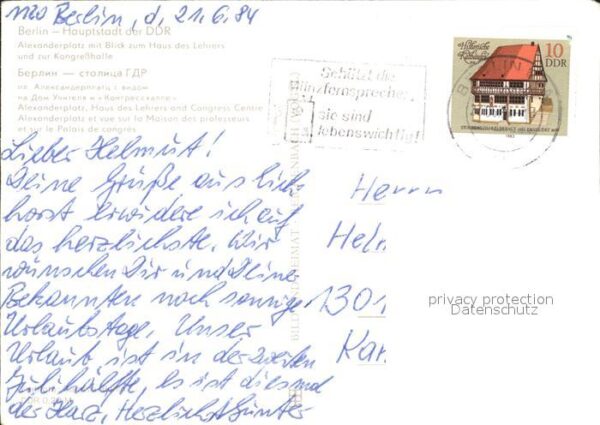 1120 Berlin, d, 21.6.84
Berlin – Hauptstadt der DDR
Alexanderplatz mit Blick zum Haus des Lehrers
und zur Kongreßhalle
Берлин — столица ГДР
пл. Александерплац с видом
на Дом Учителя и «Конгрессхалле»
Alexanderplatz, Haus des Lehrers and Congress Centre
Alexanderplatz et vue sur la Maison des professeurs
et sur le Palais de congrès
Schützt die
Münzfernsprecher,
sie sind
lebenswichtig!
Historische
Rathäuser
10
DDR
BERLIN
1983
Lieber Helmut!
Deine Grüße aus
horst erwidere ich auf
das herzlichste. Wir
wünschen Dir und Deinen
Bekannten noch sonnige
Urlaubstage. Unser
Urlaub ist in der zweiten
Julihälfte, es ist diesmal
der Harz, Herzlichst Günter
Herrn
Heln
1301
Kar
BILD UND HEIMAT
privacy protection
Datenschutz